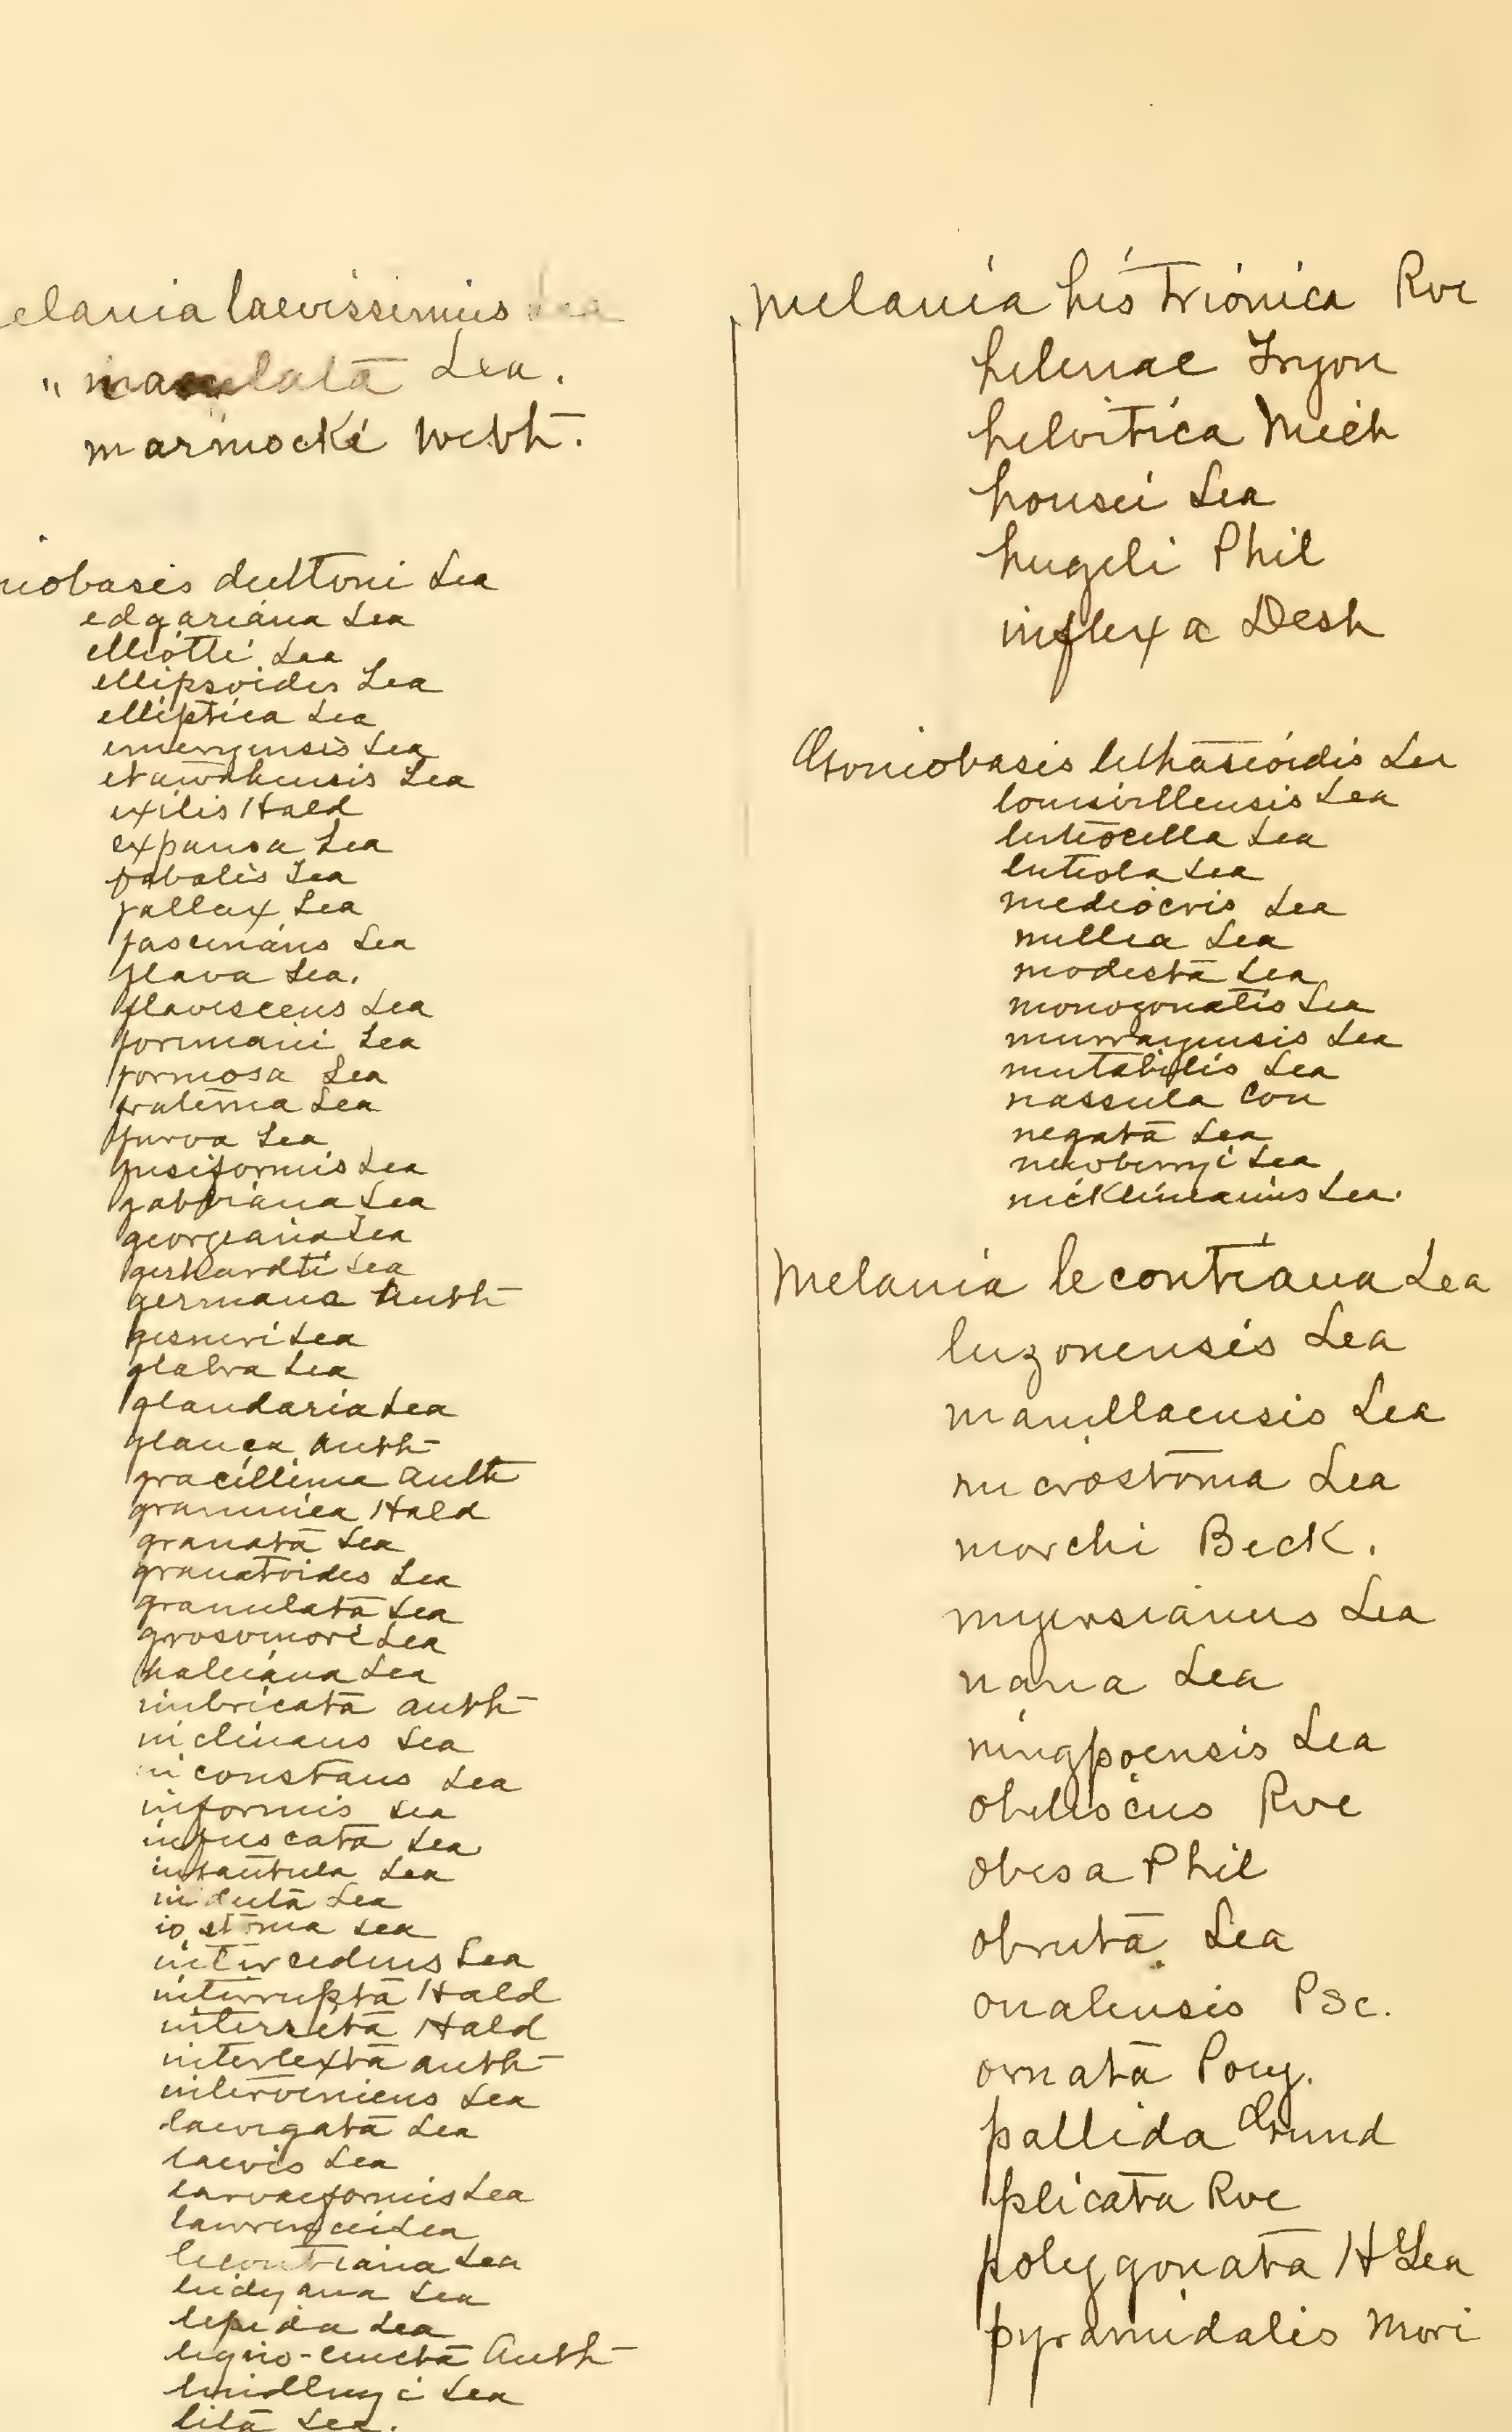 elania laevissimus Lea
" maculata Lea.
marmocki Weth.
niobasis duttoni Lea
edgariana Lea
elliotti Lea
ellipsoides Lea
elliptica Lea
emeryensis Lea
etowahensis Lea
exilis Hald
expansa Lea
fabalis Lea
fallax Lea
fascinans Lea
flava Lea.
flavescens Lea
formani Lea
formosa Lea
fraterna Lea
furva Lea
fusiformis Lea
gabbiana Lea
georgiana Lea
gerhardti Lea
germana Anth
gesneri Lea
glabra Lea
glandaria Lea
glauca Anth
gracillima Anth
graminea Hald
granata Lea
granatoides Lea
granulata Lea
grosvenori Lea
haleiana Lea
imbricata Anth
inclinans Lea
inconstans Lea
informis Lea
infuscata Lea
infantula Lea
induta Lea
iostoma Lea
intercedens Lea
interrupta Hald
interseta Hald
intertexta Anth
interveniens Lea
laevigata Lea
laevis Lea
larvaeformis Lea
lawrencei Lea
lecontiana Lea
leidyana Lea
lepida Lea
ligno-cincta Anth
lindleyi Lea
lita Lea.
Melania histrionica Rve
helenae Tryon
helvitica Mich
housei Lea
hugeli Phil
inflexa Desh
Goniobasis lithasioidis Lea
louisvillensis Lea
luteocella Lea
luteola Lea
mediocris Lea
mellea Lea
modesta Lea
monozonalis Lea
murrayensis Lea
mutabilis Lea
nassula Con
negata Lea
newberryi Lea
nicklineanus Lea.
Melania lecontiana Lea
luzonensis Lea
manillaensis Lea
microstoma Lea
morchi Beck.
myersianus Lea
nana Lea
ningpoensis Lea
obeliscus Rve
obesa Phil
obruta Lea
onalensis Psc.
ornata Poey.
pallida Grund
plicata Rve
polygonata H Lea
pyramidalis Mori